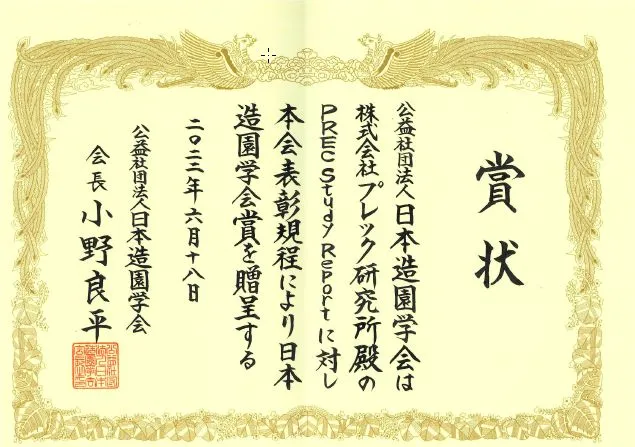 賞状
公益社団法人日本造園学会は
株式会社プレック研究所殿の
PREC Study Reportに対し
本会表彰規程により日本
造園学会賞を贈呈する
二〇二三年六月十八日
公益社団法人日本造園学会
会長 小野良平